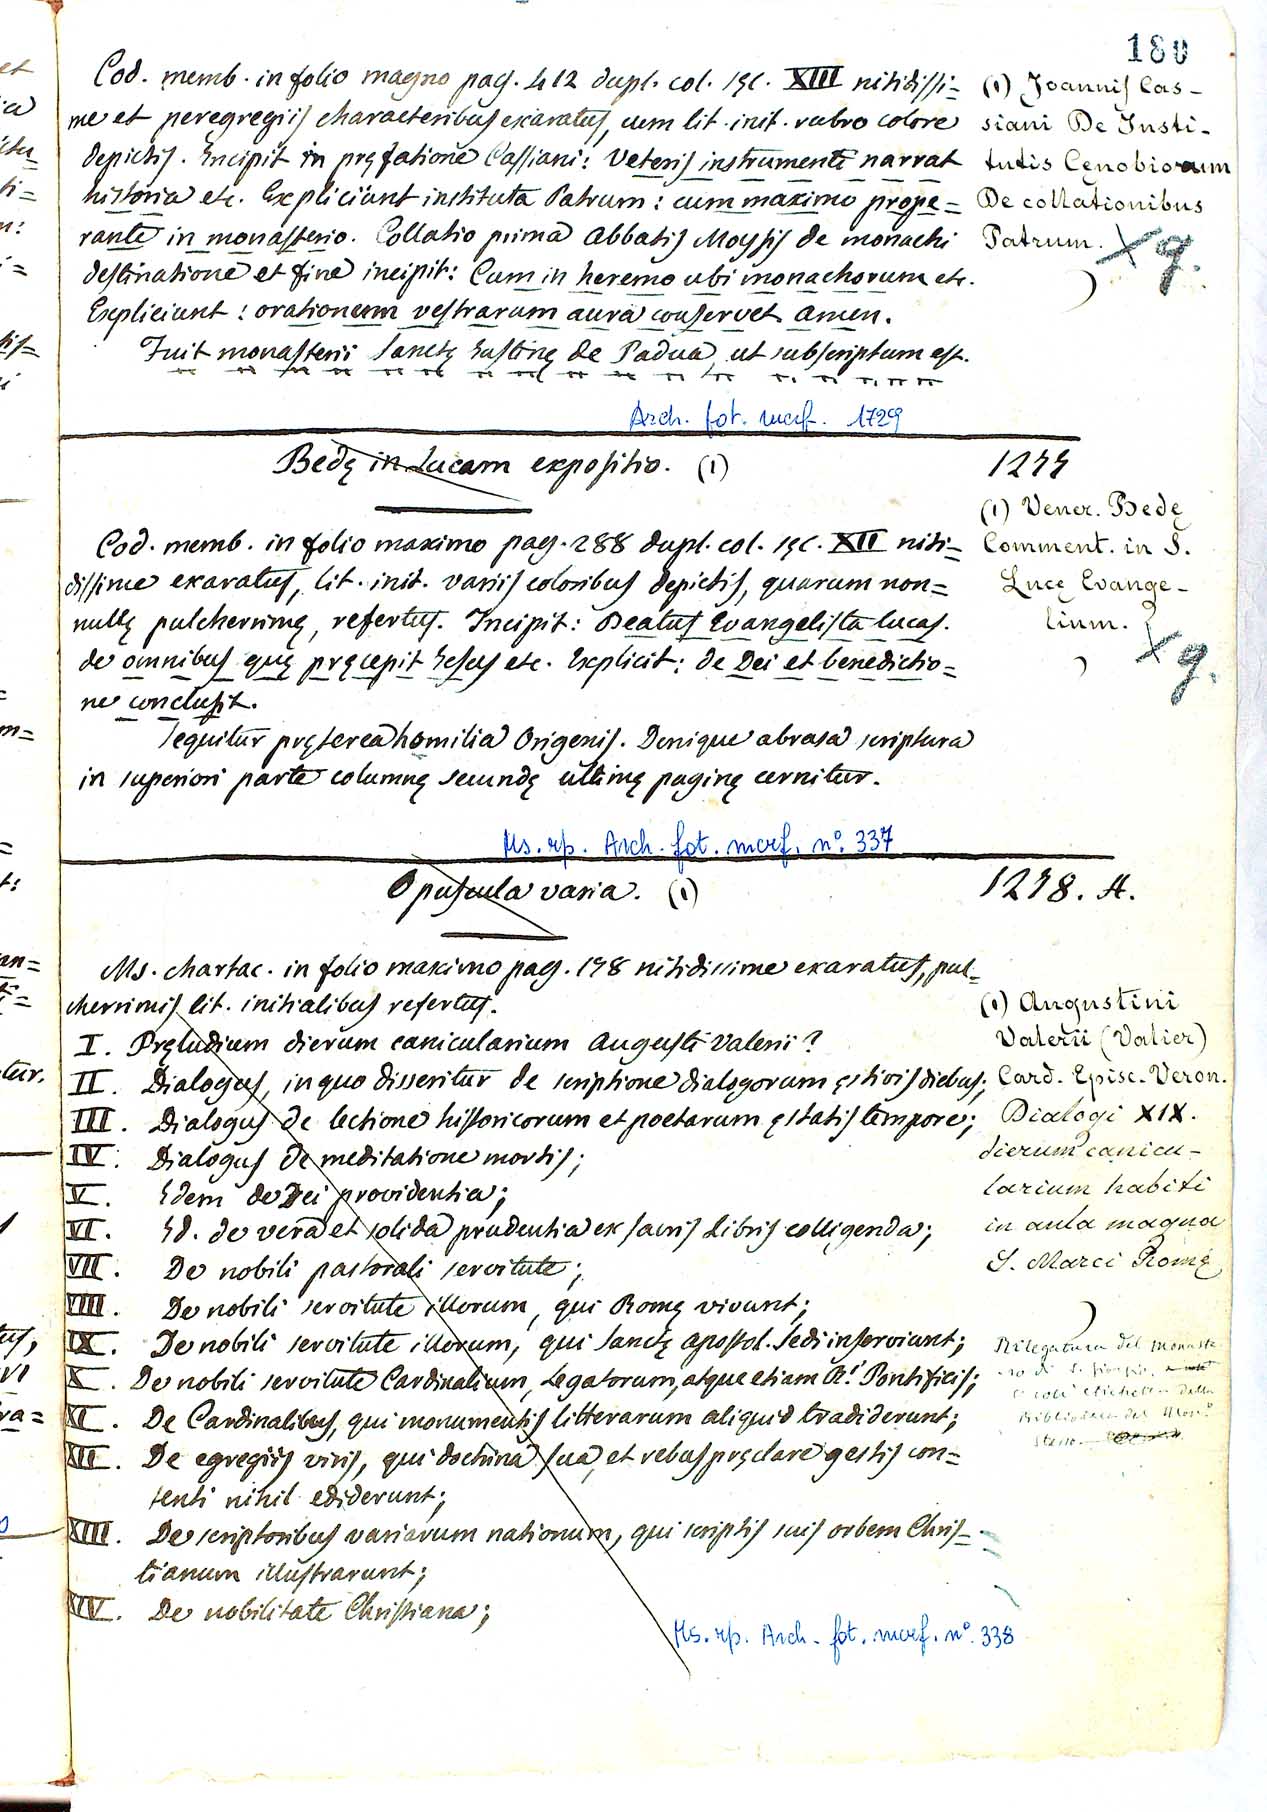 180
Cod. memb. in folio magno pag. 412 dupl. col. sęc. XIII nitidissi=
me et peregregiis characteribus exaratus, cum lit. init. rubro colore
depictis. Incipit in pręfatione Cassiani: Veteris instrumenti narrat
historia etc. Expliciunt instituta Patrum: cum maximo prope=
rante in monasterio. Collatio prima Abbatis Moysis de monachi
destinatione et fine incipit: Cum in heremo ubi monachorum etc.
Expliciunt: orationum vestrarum aura conservet. Amen.
Fuit monasterii Sanctę Justinę de Padua, ut subscriptum est.
(1) Joannis Cas-
siani De Insti-
tutis Cenobiorum
De collationibus
Patrum. X g.
Arch. fot. mcrf. 1729
Bedę in Lucam expositio. (1)
1277
Cod. memb. in folio maximo pag. 288 dupl. col. sęc. XII niti=
dissime exaratus, lit. init. variis coloribus depictis, quarum non=
nullę pulcherrimę, refertus. Incipit: Beatus Evangelista Lucas.
de omnibus quę pręcepit Jesus etc. Explicit: de Dei et benedictio=
ne conclusit.
Sequitur pręterea homilia Origenis. Denique abrasa scriptura
in superiori parte columnę secundę ultimę paginę cernitur.
(1) Vener. Bedę
Comment. in S.
Lucę Evange-
lium.
X g.
Ms. rp. Arch. fot. mcrf. nº. 337
Opuscula varia. (1)
1278. A.
Ms. chartac. in folio maximo pag. 178 nitidissime exaratus, pul=
cherrimis lit. initialibus refertus.
I. Pręludium dierum canicularium Augusti Valerii?
II. Dialogus, in quo disseritur de scriptione dialogorum ęstivis diebus;
III. Dialogus de lectione historicorum et poetarum ęstatis tempore;
IV. Dialogus de meditatione mortis;
V. Idem de Dei providentia;
VI. Id. de vera et solida prudentia ex sacris Libris colligenda;
VII. De nobili pastorali servitute;
VIII. De nobili servitute illorum, qui Romę vivunt;
IX. De nobili servitute illorum, qui Sanctę Apostol. Sedi inserviunt;
X. De nobili servitute Cardinalium, Legatorum, atque etiam R.i Pontificis;
XI. De Cardinalibus, qui monumentis litterarum aliquid tradiderunt;
XII. De egregiis viris, qui doctrina sua, et rebus pręclare gestis con=
tenti nihil ediderunt;
XIII. De scriptoribus variarum nationum, qui scriptis suis orbem Chris=
tianum illustrarunt;
XIV. De nobilitate Christiana;
(1) Augustini
Valerii (Valier)
Card. Episc. Veron.
Dialogi XIX.
dierum canicu-
larium habiti
in aula magna
S. Marci Romę
Rilegatura del monaste
ro di S. Giorgio,
etichetta della
Biblioteca del Mon.
stero.
Ms. rp. Arch. fot. mcrf. nº. 338